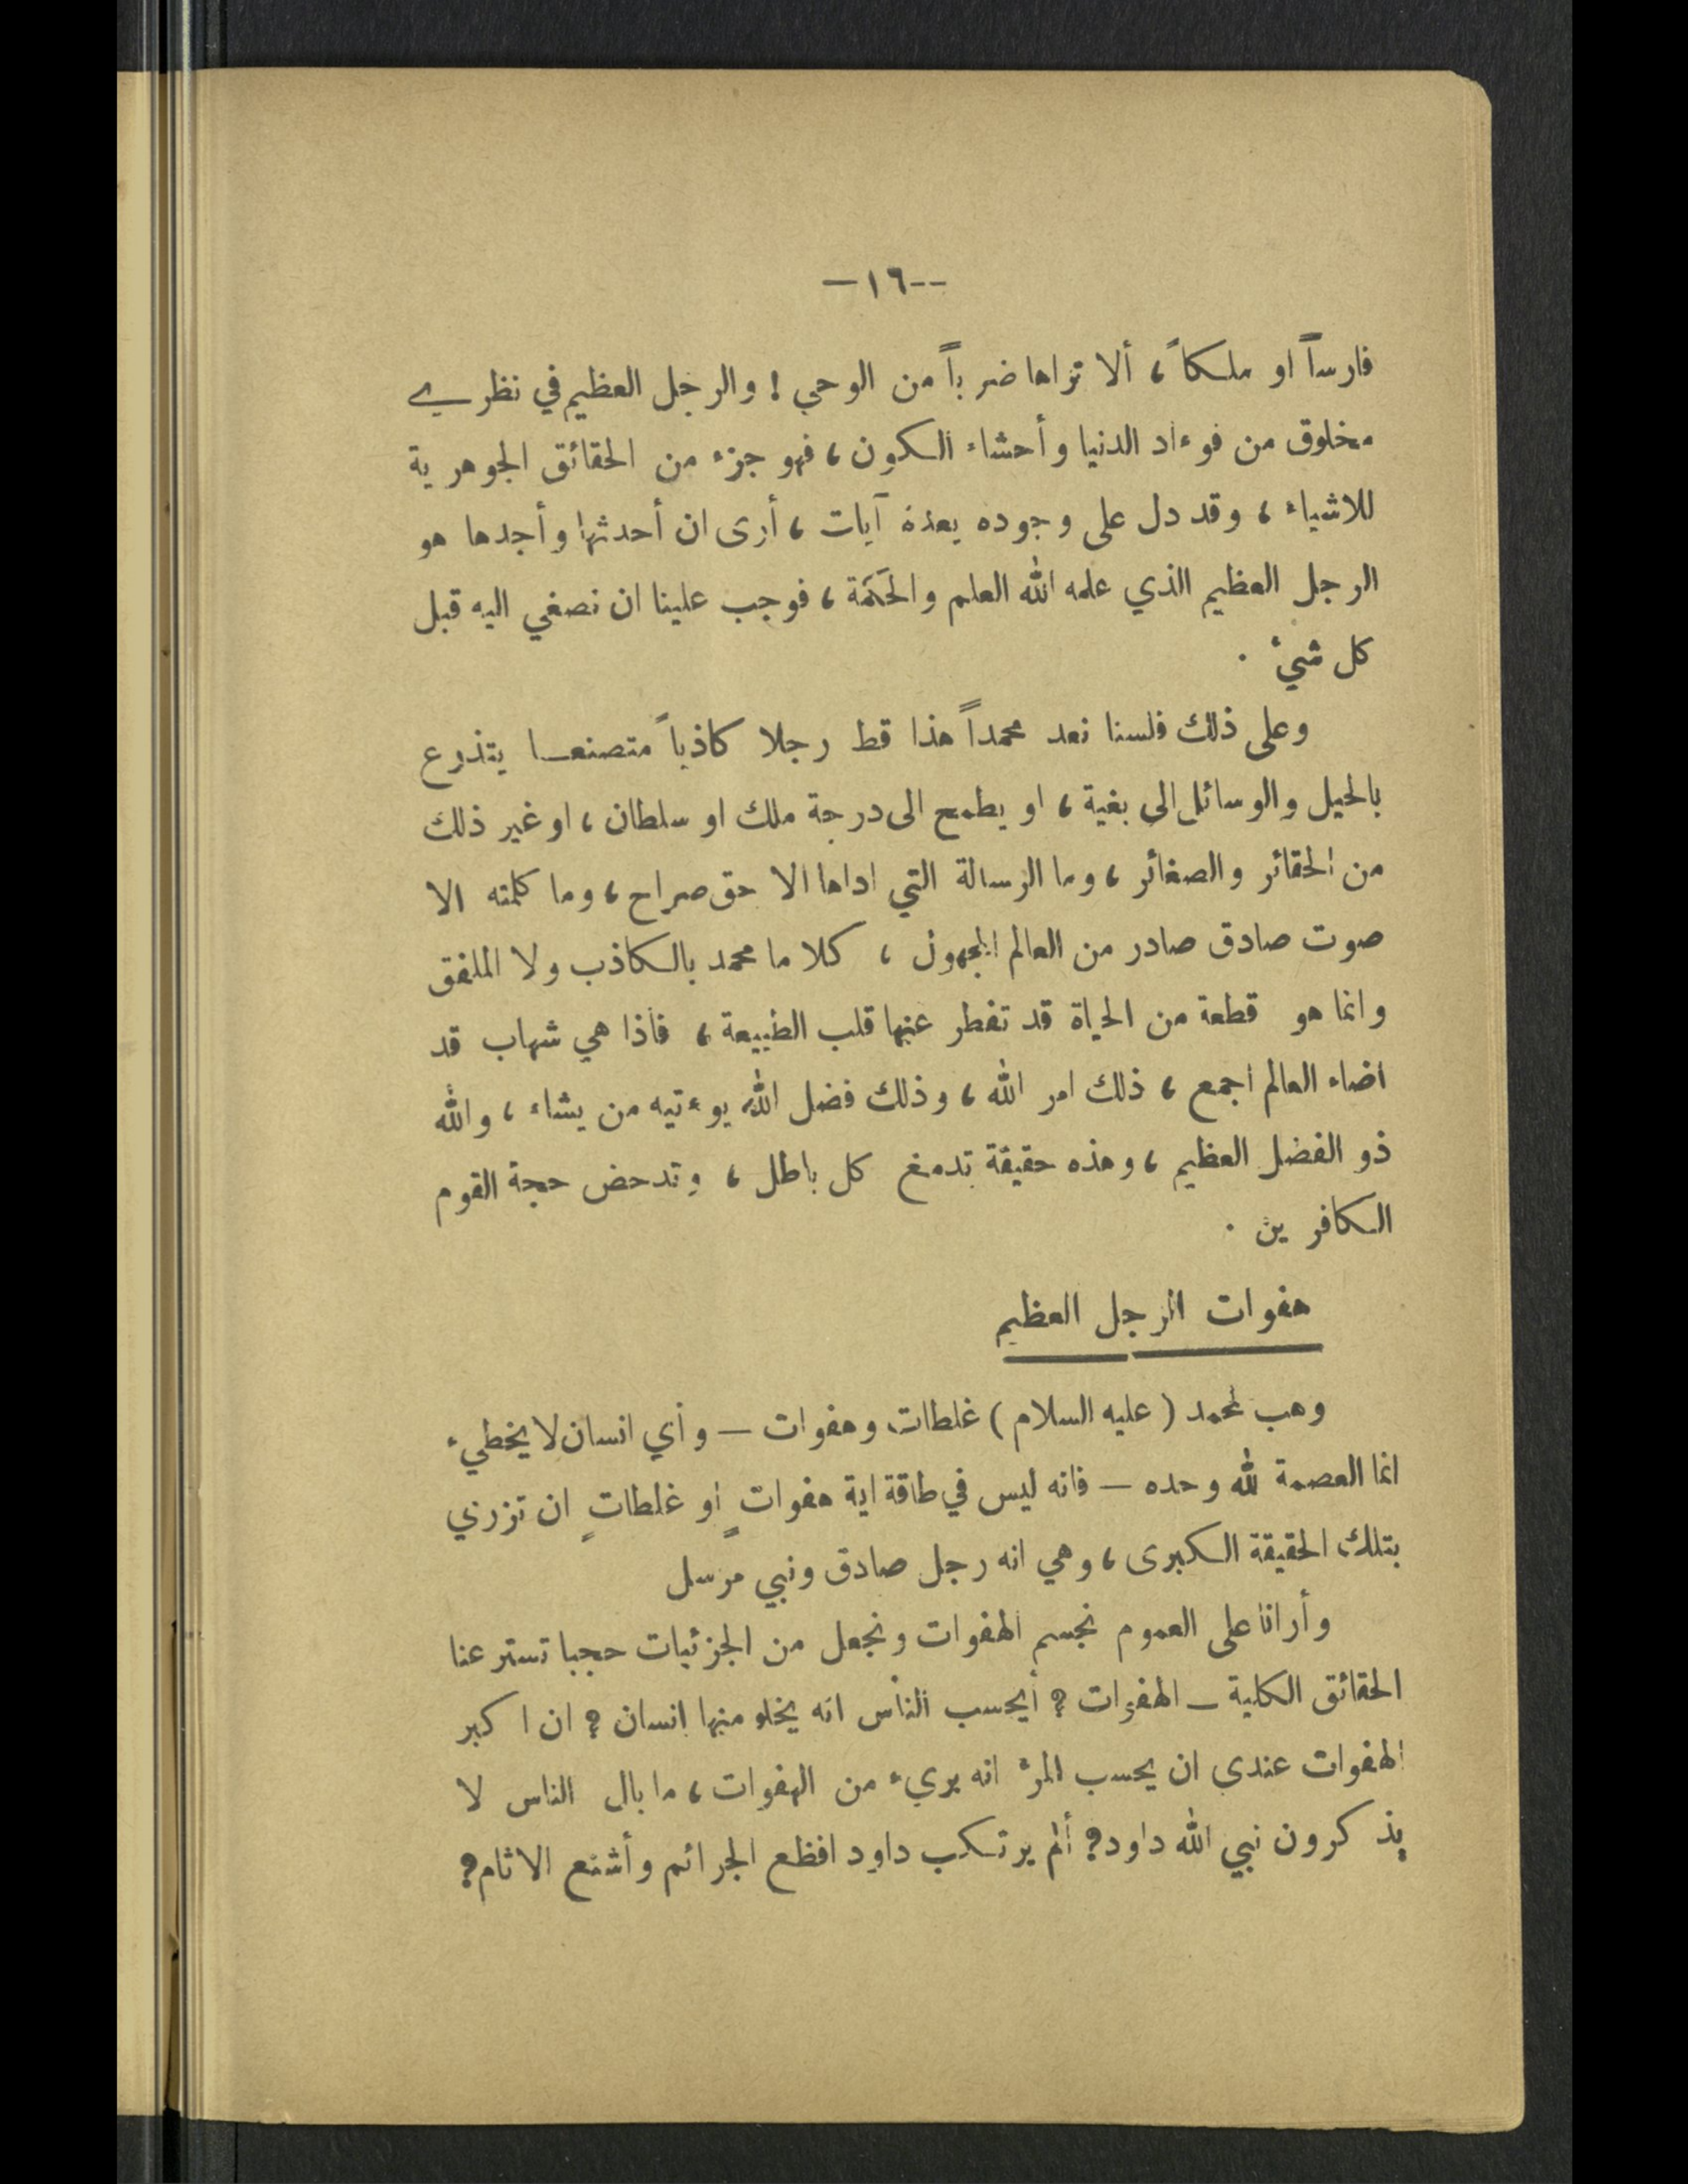 --١٦-
فارساً او ملكاً، ألا تراها ضرباً من الوحي! والرجل العظيم في نظري
مخلوق من فوءاد الدنيا وأحشاء الكون، فهو جزء من الحقائق الجوهرية
للاشياء، وقد دل على وجوده بعدة آيات، أرى ان أحدثها وأجدها هو
الرجل العظيم الذي علمه الله العلم والحكمة، فوجب علينا ان نصغي اليه قبل
كل شيء.
وعلى ذلك فلسنا نعد محمداً هذا قط رجلا كاذباً متصنعا يتذرع
بالحيل والوسائل الى بغية، او يطمح الى درجة ملك او سلطان، او غير ذلك
من الحقائر والصغائر، وما الرسالة التي اداها الا حق صراح، وما كلمته الا
صوت صادق صادر من العالم المجهول، كلا ما محمد بالكاذب ولا الملفق
وانما هو قطعة من الحياة قد تفطر عنها قلب الطبيعة، فاذا هي شهاب قد
اضاء العالم اجمع، ذلك امر الله، وذلك فضل الله يوءتيه من يشاء، والله
ذو الفضل العظيم، وهذه حقيقة تدمغ كل باطل، وتدحض حجة القوم
الكافرين.
هفوات الرجل العظيم
وهب لمحمد (عليه السلام) غلطات وهفوات — وأي انسان لا يخطيء
انما العصمة لله وحده — فانه ليس في طاقة اية هفواتٍ او غلطاتٍ ان تزري
بتلك الحقيقة الكبرى، وهي انه رجل صادق ونبي مرسل
وأرانا على العموم نجسم الهفوات ونجعل من الجزئيات حجبا تستر عنا
الحقائق الكلية — الهفوات؟ أيحسب الناس انه يخلو منها انسان؟ ان اكبر
الهفوات عندي ان يحسب المرء انه بريء من الهفوات، ما بال الناس لا
يذكرون نبي الله داود؟ ألم يرتكب داود افظع الجرائم وأشنع الاثام؟